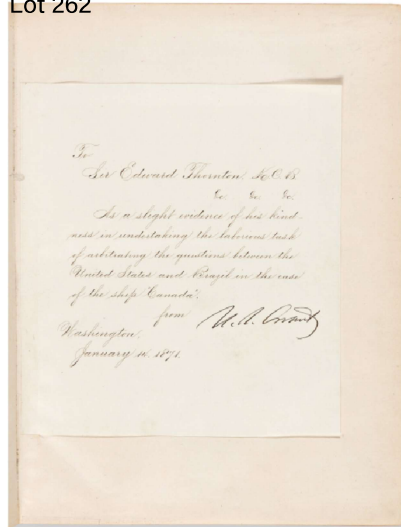 Lot 262
To
Sir Edward Thornton K.C.B.
&c. &c. &c.
As a slight evidence of his kind-
ness in undertaking the laborious task
of arbitrating the questions between the
United States and Brazil in the case
of the ship "Canada".
from
U. S. Grant
Washington,
January 1871.